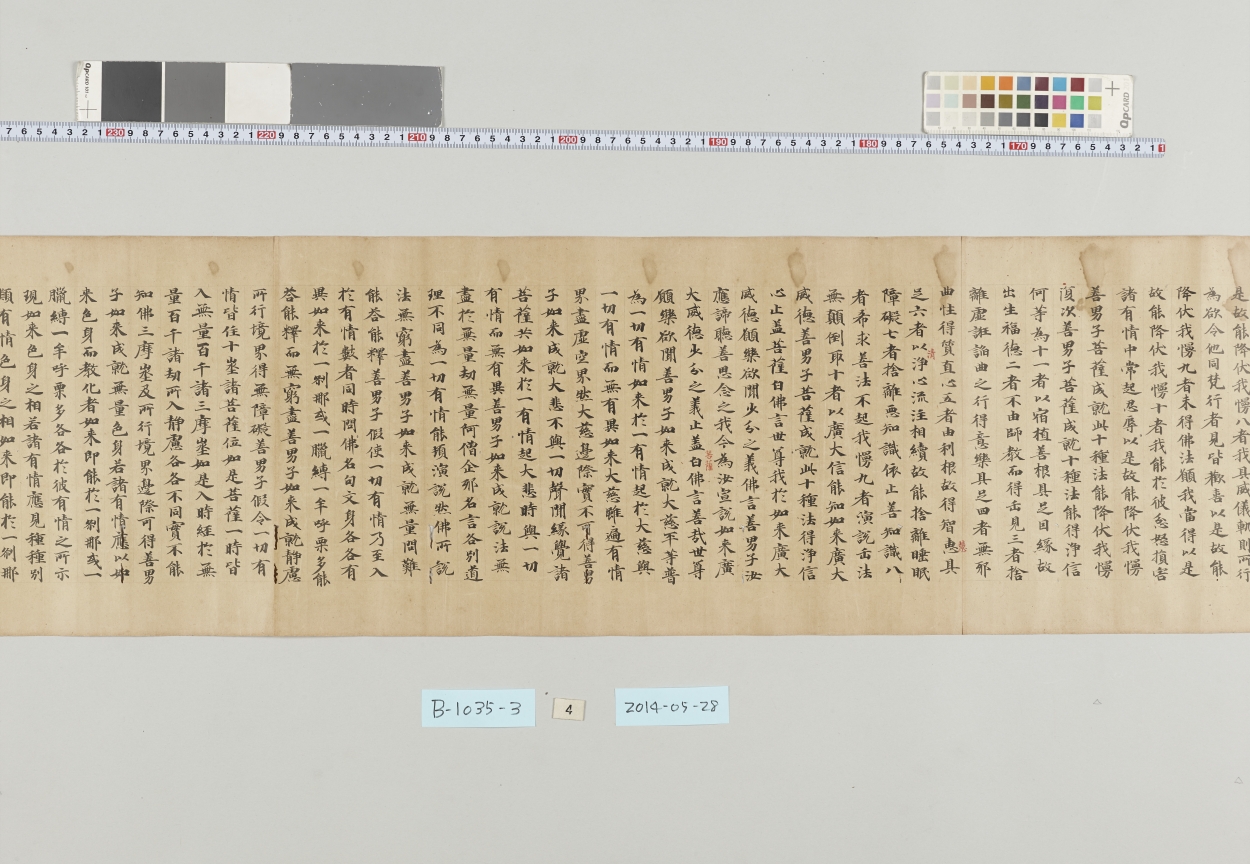 是故能降伏我慢八者我具威儀軌則所行
為欲令他同梵行者見皆歡喜以是故能
降伏我慢九者未得佛法願我當得以是
故能降伏我慢十者我能於彼忿怒損害
諸有情中常起忍辱以是故能降伏我慢
善男子菩薩成就此十種法能降伏我慢
復次善男子菩薩成就十種法能得淨信
何等為十一者以宿植善根具足因緣故
出生福德二者不由師教而得正見三者捨
離虛誑諂曲之行得意樂具足四者無邪
曲性得質直心五者由利根故得智惠具
足六者以淨心流注相續故能捨離睡眠
障礙七者捨離惡知識依止善知識八
者希求善法不起我慢九者演說正法
無顛倒取十者以廣大信能知如來廣大
威德善男子菩薩成就此十種法得淨信
心止蓋菩薩白佛言世尊我於如來廣大
威德願樂欲聞少分之義佛言善男子汝
應諦聽善思念之我今為汝宣說如來廣
大威德少分之義止蓋白佛言善哉世尊
願樂欲聞善男子如來成就大慈平等普
為一切有情如來於一有情起於大慈與
一切有情而無有異如來大慈雖遍有情
界盡虛空界然大慈邊際實不可得善男
子如來成就大悲不與一切聲聞緣覺諸
菩薩共如來於一有情起大悲時與一切
有情而無有異善男子如來成就說法無
盡於無量劫無量阿僧企那名言各別道
理不同為一切有情能頻演說然佛所說
法無窮盡善男子如來成就無量問難
能答能釋善男子假使一切有情乃至入
於有情數者同時問佛名句文身各各有
異如來於一剎那或一臘縛一牟呼栗多能
答能釋而無窮盡善男子如來成就靜慮
所行境界得無障礙善男子假令一切有
情皆住十地諸菩薩位如是菩薩一時皆
入無量百千諸三摩地如是入時經於無
量百千諸劫所入靜慮各各不同實不能
知佛三摩地及所行境界邊際可得善男
子如來成就無量色身若諸有情應以如
來色身而教化者如來即能於一剎那或一
臘縛一牟呼栗多各各於彼有情之所示
現如來色身之相若諸有情應見種種別
類有情色身之相如來即能於一剎那
B-1035-3
4
2014-05-28